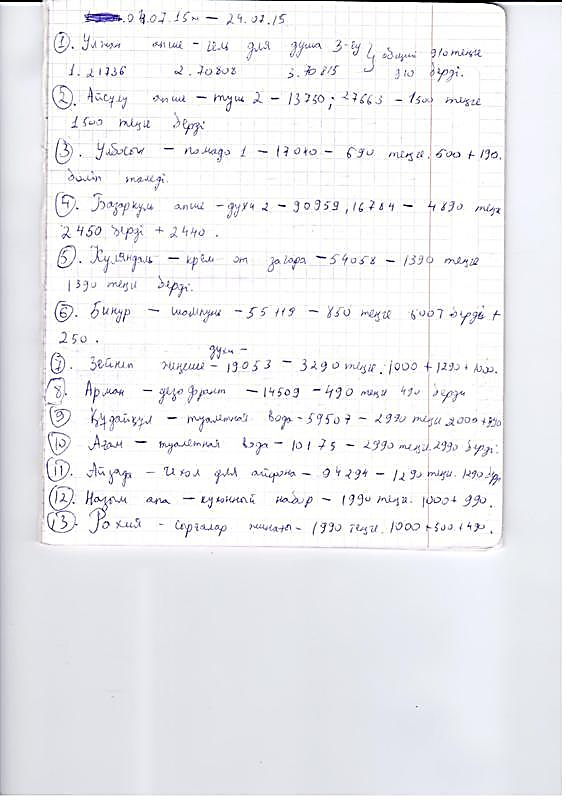 04.07.15ж — 24.07.15
1. Улжан апше - гель для душа 3-еу } общий 910 теңге
1. 21736 2. 70808 3. 70815 910 берді.
2. Айсулу апше - тушь 2 - 13750; 27663 - 1500 теңге
1500 теңге берді
3. Улбосын - помада 1 - 17040 - 690 теңге. 500 + 190.
бөліп төледі.
4. Базаркул апше - духи 2 - 90959, 16784 - 4890 теңге
2450 берді + 2440.
5. Куляндаль - крем от загара - 54058 - 1390 теңге
1390 теңге берді.
6. Бинур - шампунь - 55119 - 850 теңге 600т берді +
250.
духи -
7. Зейнеп жеңеше - 19053 - 3290 теңге. 1000 + 1290 + 1000.
8. Арман - дезодорант - 14509 - 490 теңге 490 берді
9. Құдайқул - туалетная вода - 59507 - 2990 теңге 2000 + 990
10. Агам - туалетная вода - 10175 - 2990 теңге. 2990 берді.
11. Айзада - Чехол для айфона - 94294 - 1290 теңге. 1290 берді
12. Назым апа - кухонный набор - 1990 теңге. 1000 + 990.
13. Рахия - сырғалар жинағы - 1990 теңге. 1000 + 500 + 490.